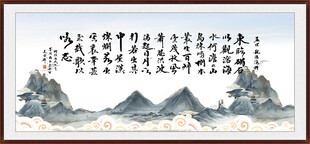 東臨碣石
以觀滄海
水何澹澹山
島竦峙樹木
叢生百草
豐茂秋風
蕭瑟洪波
湧起日月之
行若出其
中星漢
燦爛若出
其裏幸甚
至哉歌以
詠志